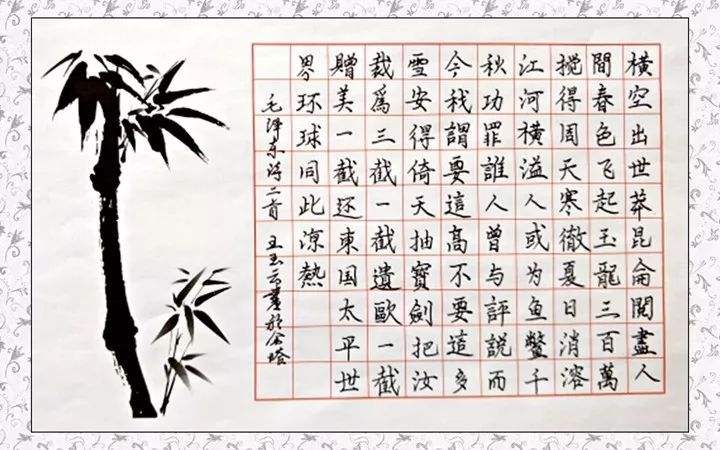 横空出世莽昆侖閱盡人
間春色飞起玉龍三百萬
搅得周天寒徹夏日消溶
江河横溢人或为鱼鳖千
秋功罪誰人曾与評說而
今我謂要這高不要這多
雪安得倚天抽寶劍把汝
裁爲三截一截遺歐一截
贈美一截还東国太平世
界环球同此凉熱
毛泽东诗二首 王玉云書於金塔